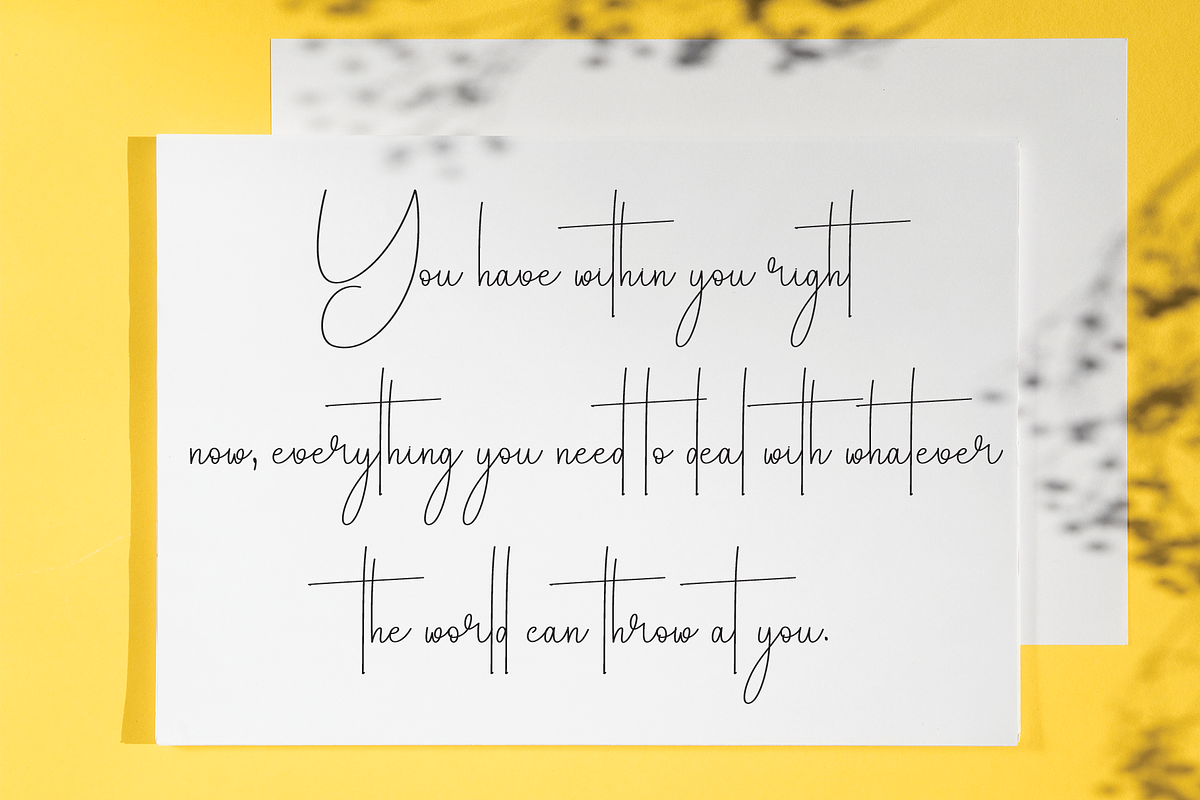 You have within you right
now, everything you need to deal with whatever
the world can throw at you.